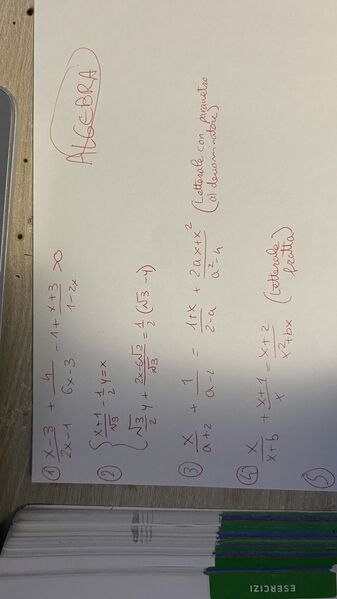 ALGEBRA
① x-3/2x-1 + 4/6x-3 -1 + x+3/1-2x >0
② { x+1/√3 - 1/2 y = x
√3/2 y + 2x-6√2/√3 = 1/2 (√3 - y)
③ x/a+2 + 1/a-2 = 1+x/2-a + 2ax+x²/a²-4 (Letterale con parametro al denominatore)
④ x/x+b + x+1/x = x+2/x²+bx (Letterale fratta)
5
ESERCIZI